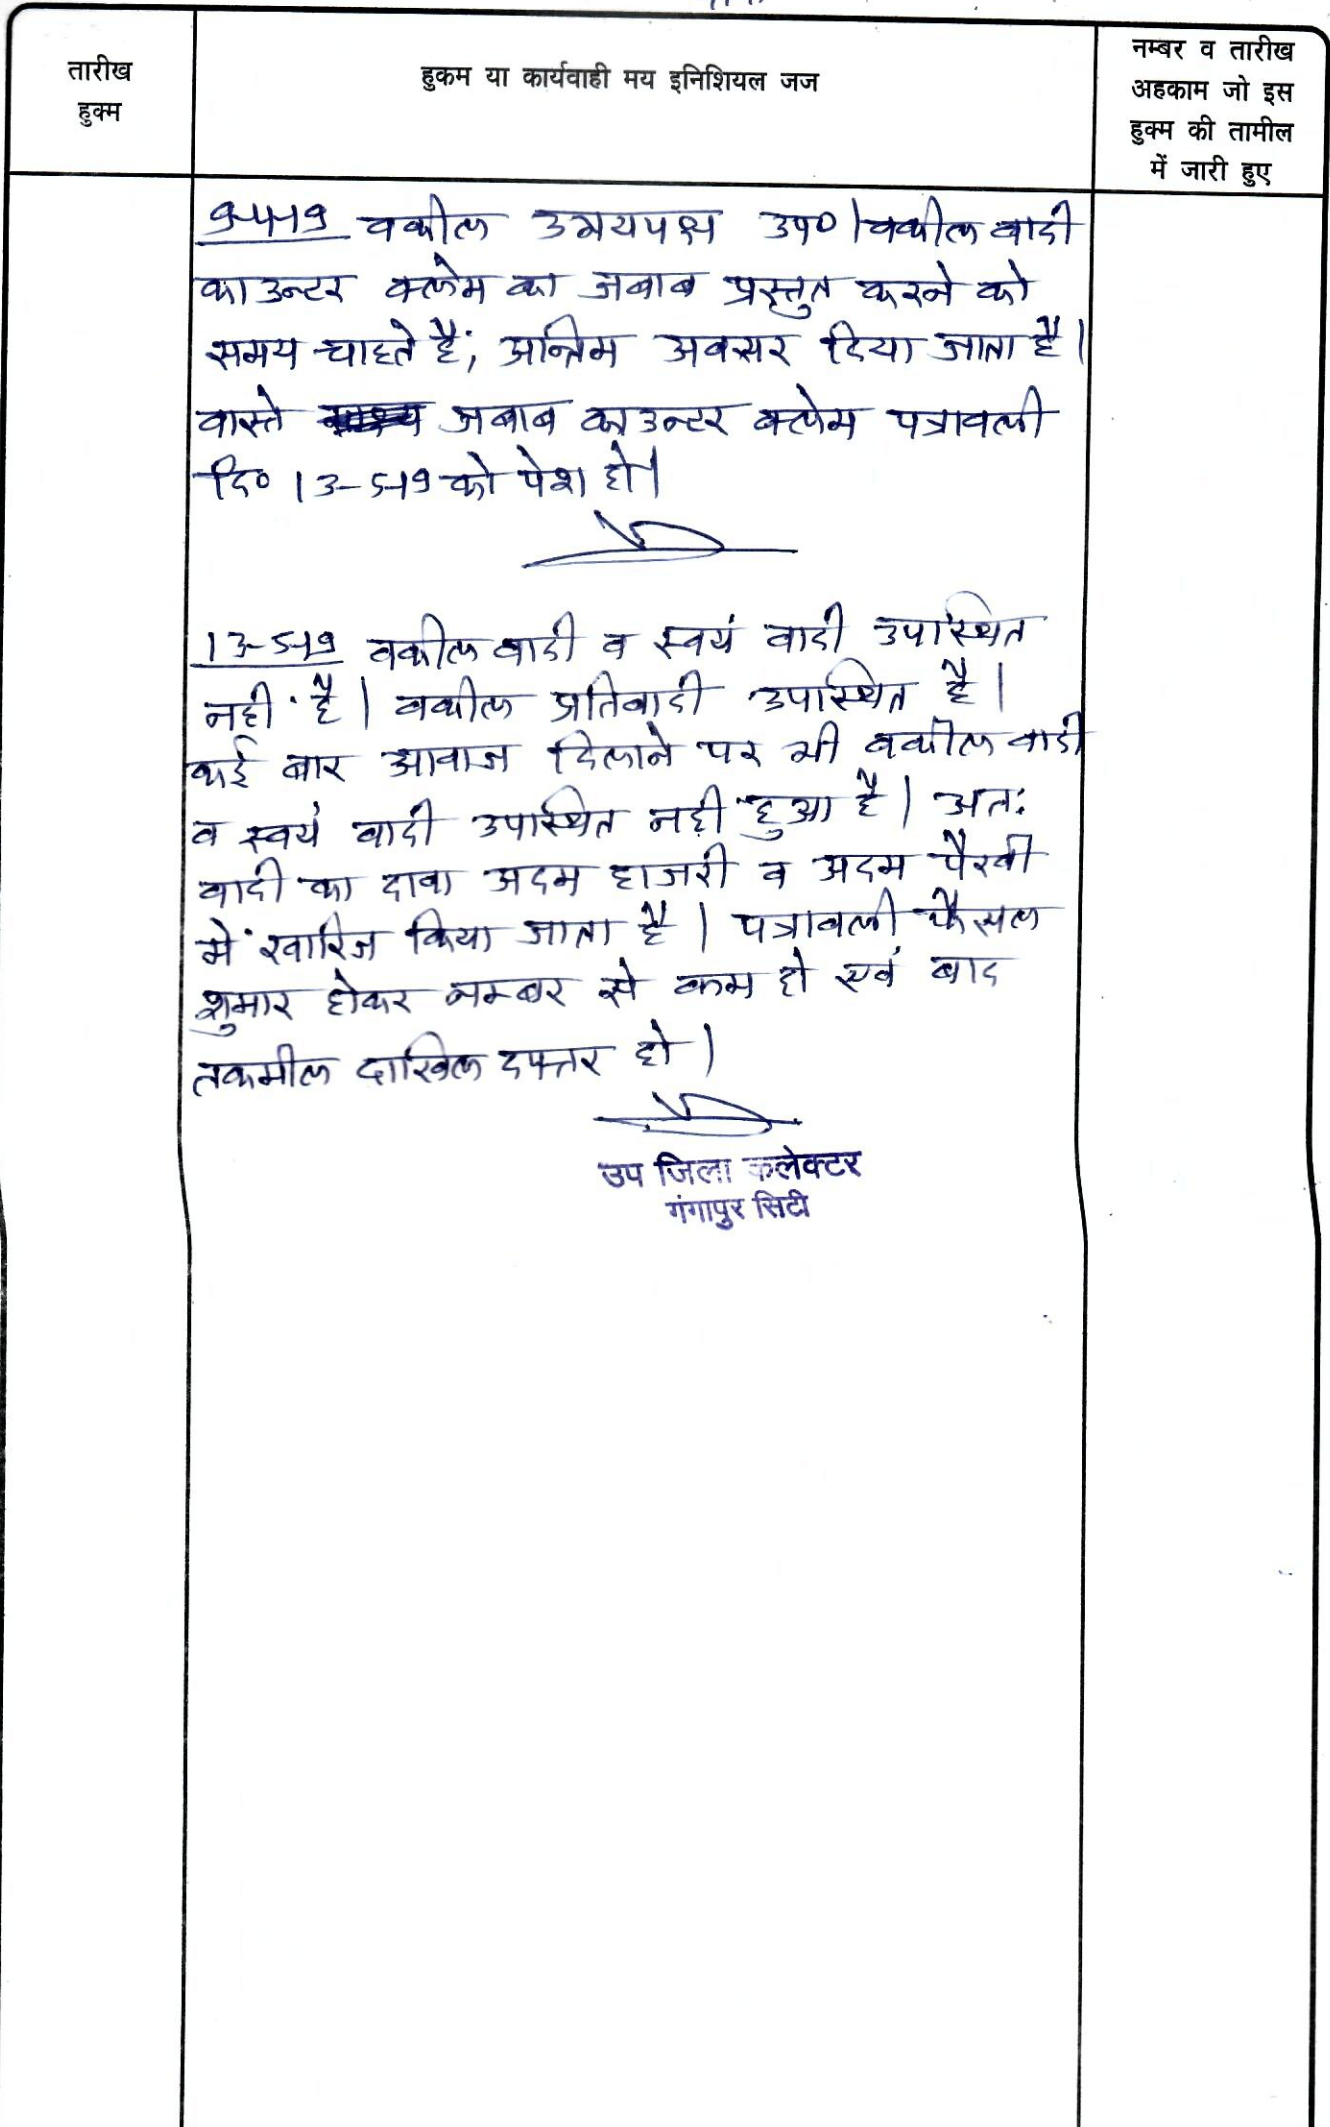 तारीख
हुक्म
हुकम या कार्यवाही मय इनिशियल जज
नम्बर व तारीख
अहकाम जो इस
हुक्म की तामील
में जारी हुए
9-4-19 वकील उभयपक्ष उप० । वकील वादी
काउन्टर क्लेम का जबाब प्रस्तुत करने को
समय चाहते है; अन्तिम अवसर दिया जाता है।
वास्ते जबाब काउन्टर क्लेम पत्रावली
दि० 13-5-19 को पेश हो।
13-5-19 वकील वादी व स्वयं वादी उपस्थित
नही है। वकील प्रतिवादी उपस्थित है।
कई बार आवाज दिलाने पर भी वकील वादी
व स्वयं वादी उपस्थित नही हुआ है। अतः
वादी का दावा अदम हाजरी व अदम पैरवी
में खारिज किया जाता है। पत्रावली फैसल
शुमार होकर नम्बर से कम हो एवं बाद
तकमील दाखिल दफ्तर हो।
उप जिला कलेक्टर
गंगापुर सिटी